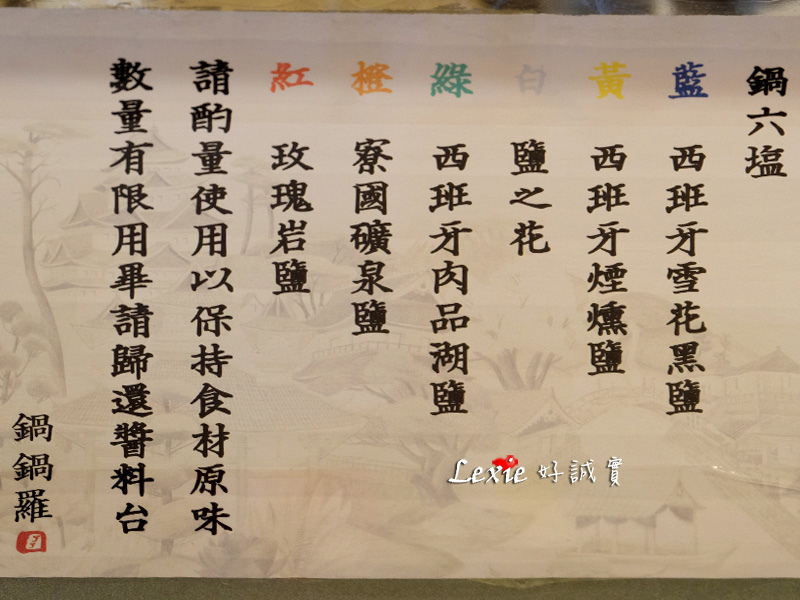 鍋六塩
藍 西班牙雪花黑鹽
黃 西班牙煙燻鹽
白 鹽之花
綠 西班牙肉品湖鹽
橙 寮國礦泉鹽
紅 玫瑰岩鹽
請酌量使用以保持食材原味
數量有限用畢請歸還醬料台
鍋鍋羅
Lexie 好誠實